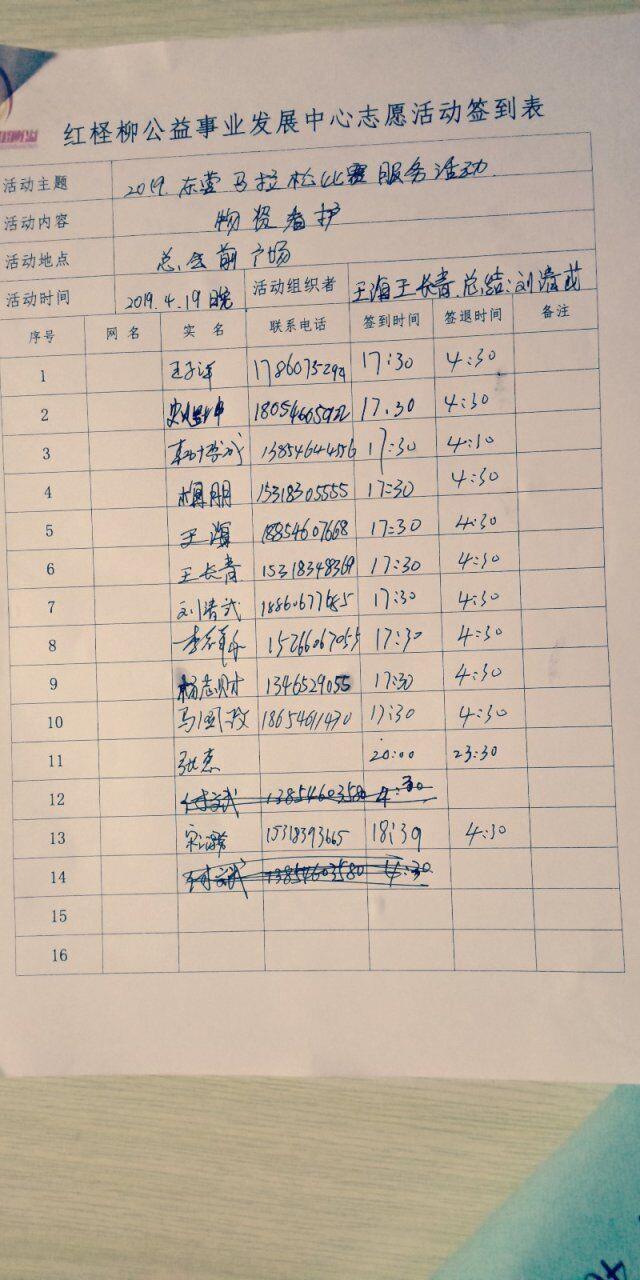 红柽柳公益事业发展中心志愿活动签到表
活动主题 2019 东营马拉松比赛服务活动
活动内容 物资看护
活动地点 总会前广场
活动时间 2019.4.19晚 活动组织者 王海王长青.总结:刘清武
序号 网名 实名 联系电话 签到时间 签退时间 备注
1 17:30 4:30
2 17.30 4:30
3 13854644456 17:30 4:30
4 梅朋 15318305555 17:30 4:30
5 王海 18854607668 17:30 4:30
6 王长青 15318348369 17:30 4:30
7 刘清武 17:30 4:30
8 15266067055 17:30 4:30
9 杨志财 1346529055 17:30 4:30
10 马国政 17:30 4:30
11 张杰 20:00 23:30
12 13854603580 4:30
13 15318393665 18:39 4:30
14 13854603580 4:30
15
16